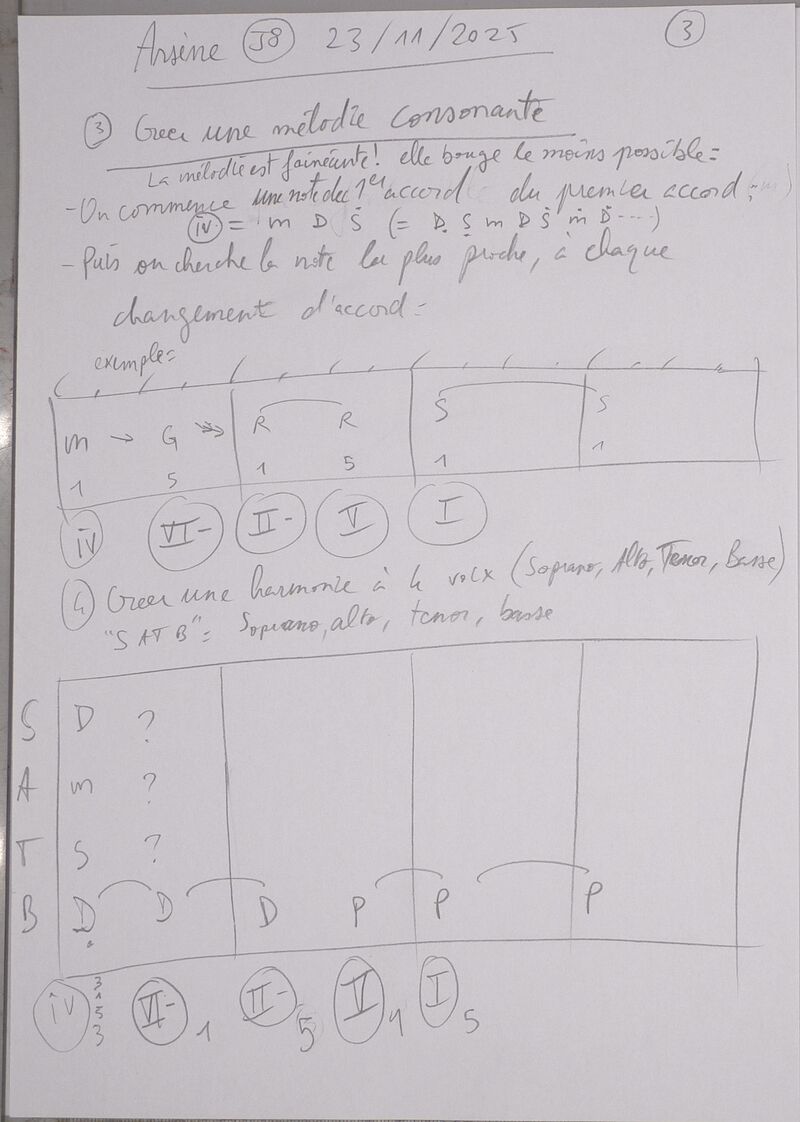 Arsène J8 23/11/2025 3
3 Créer une mélodie consonante
La mélodie est fainéante! elle bouge le moins possible =
- On commence une note du 1er accord du premier accord :
iv = m D Ṡ (= Ḍ Ṣ m D Ṡ ṁ Ḋ ....)
- Puis on cherche la note la plus proche, à chaque
changement d'accord =
exemple =
m → G →» R R S S
1 5 1 5 1 1
iv VI- II- V I
4 Créer une harmonie à 4 voix (Soprano, Alto, Tenor, Basse)
"SATB" = Soprano, alto, tenor, basse
S D ?
A m ?
T S ?
B Ḍ D D P P P
iv 3 1 5 3 VI- 1 II- 5 V 1 I 5